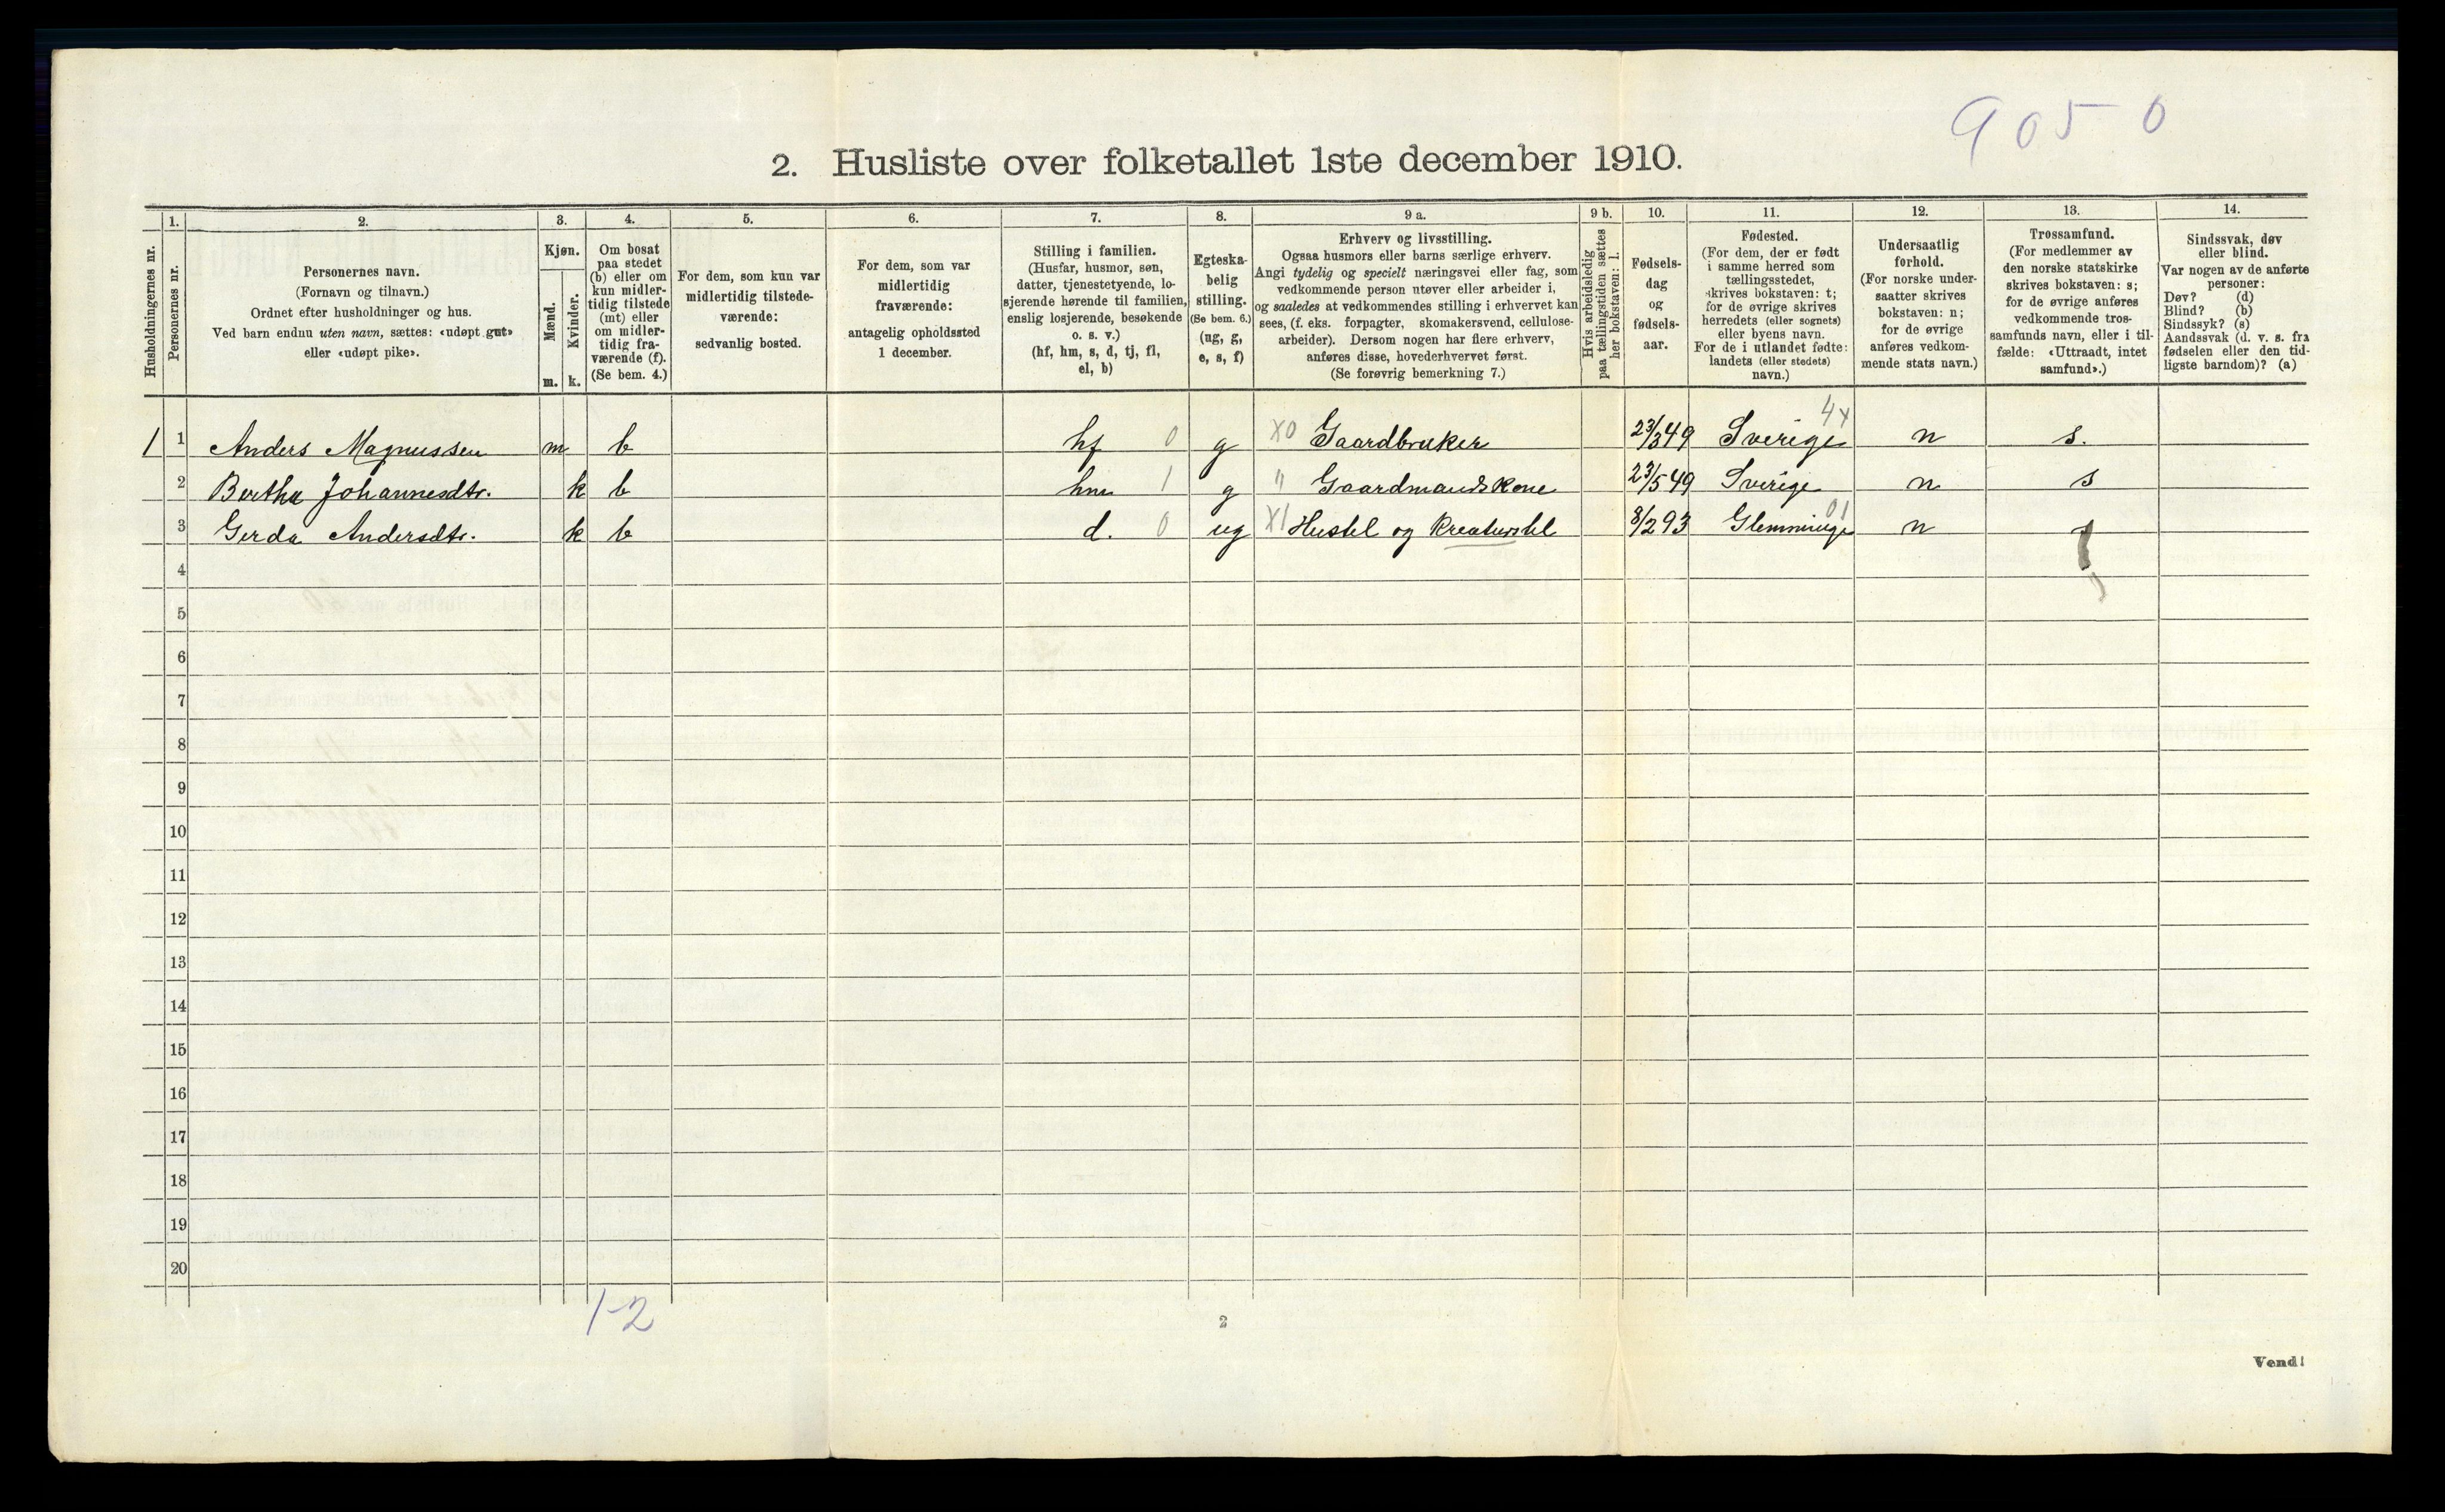 9050
2. Husliste over folketallet 1ste december 1910.
Husholdningernes nr.
1.
Personernes nr.
2.
Personernes navn.
(Fornavn og tilnavn.)
Ordnet efter husholdninger og hus.
Ved barn endnu uten navn, sættes: «udøpt gut»
eller «udøpt pike».
3.
Kjøn.
Mænd.
Kvinder.
m. k.
4.
Om bosat
paa stedet
(b) eller om
kun midler-
tidig tilstede
(mt) eller
om midler-
tidig fra-
værende (f).
(Se bem. 4.)
5.
For dem, som kun var
midlertidig tilstede-
værende:
sedvanlig bosted.
6.
For dem, som var
midlertidig
fraværende:
antagelig opholdssted
1 december.
7.
Stilling i familien.
(Husfar, husmor, søn,
datter, tjenestetyende, lo-
sjerende hørende til familien,
enslig losjerende, besøkende
o. s. v.)
(hf, hm, s, d, tj, fl,
el, b)
8.
Egteska-
belig
stilling.
(Se bem. 6.)
(ug, g,
e, s, f)
9 a.
Erhverv og livsstilling.
Ogsaa husmors eller barns særlige erhverv.
Angi tydelig og specielt næringsvei eller fag, som
vedkommende person utøver eller arbeider i,
og saaledes at vedkommendes stilling i erhvervet kan
sees, (f. eks. forpagter, skomakersvend, cellulose-
arbeider). Dersom nogen har flere erhverv,
anføres disse, hovederhvervet først.
(Se forøvrig bemerkning 7.)
9 b.
Hvis arbeidsledig
paa tællingstiden sættes
her bokstaven: l.
10.
Fødsels-
dag
og
fødsels-
aar.
11.
Fødested.
(For dem, der er født
i samme herred som
tællingsstedet,
skrives bokstaven: t;
for de øvrige skrives
herredets (eller sognets)
eller byens navn.
For de i utlandet fødte:
landets (eller stedets)
navn.)
12.
Undersaatlig
forhold.
(For norske under-
saatter skrives
bokstaven: n;
for de øvrige
anføres vedkom-
mende stats navn.)
13.
Trossamfund.
(For medlemmer av
den norske statskirke
skrives bokstaven: s;
for de øvrige anføres
vedkommende tros-
samfunds navn, eller i til-
fælde: «Uttraadt, intet
samfund».)
14.
Sindssvak, døv
eller blind.
Var nogen av de anførte
personer:
Døv? (d)
Blind? (b)
Sindssyk? (s)
Aandssvak (d. v. s. fra
fødselen eller den tid-
ligste barndom)? (a)
1 1 Anders Magnussen m b hf 0 g X0 Gaardbruker 23/3 49 Sverige 4x n s.
2 Berthe Johannesdtr. k b hm 1 g " Gaardmandskone 23/5 49 Sverige n s
3 Gerda Andersdtr. k b d. 0 ug X1 Hustel og Kreaturstel 8/2 93 Glemminge 01 n
4
5
6
7
8
9
10
11
12
13
14
15
16
17
18
19
20
1-2
2
Vend!